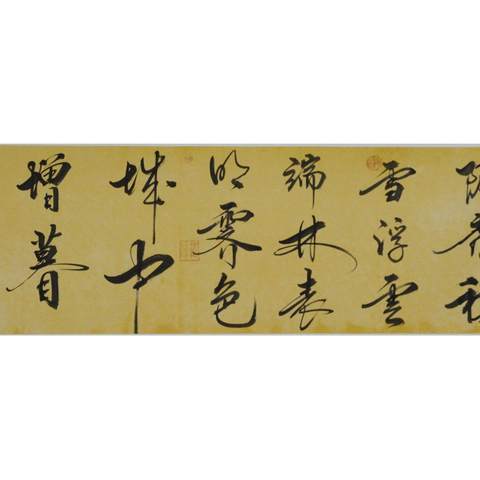 雪浮雲
端林表
明霽色
城中
增暮